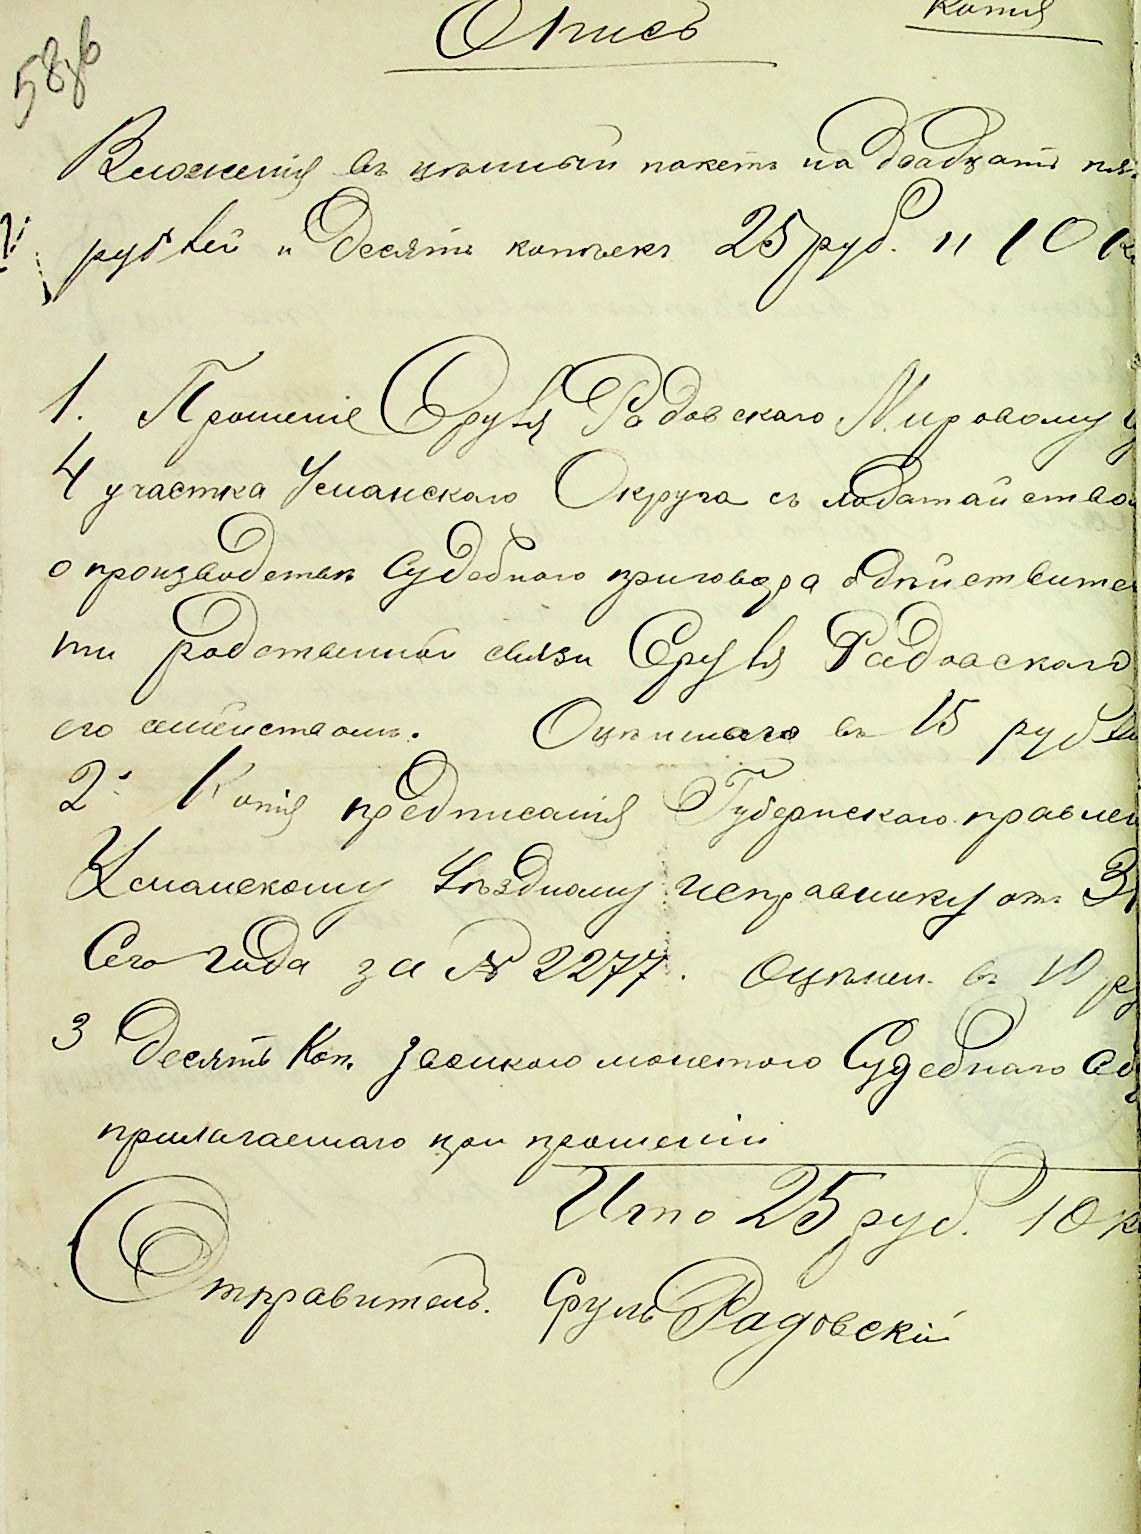 Копія
Опись
58
Вложенія въ цѣнный пакетъ на двадцать пя
рублей и десять копѣекъ 25 руб. и 10 к
1. Прошеніе Сруля Радовскаго Мировому
4 участка Уманскаго Округа съ ходатайством
о производствѣ судебнаго приговора о дѣйствител
ти родственной связи Сруля Радовскаго
его семействомъ. Оцѣннаго въ 15 рубле
2. Копія предписанія Губернскаго правлен
Уманскому Уѣздному исправнику отъ 31
Сего года за № 2277. Оцѣнен. въ 10 р
3 Десять Коп. звонкою монетою Судебнаго сб
прилагаемаго при прошеніи
Итто 25 руб. 10 к
Отправитель. Сруль Радовскій